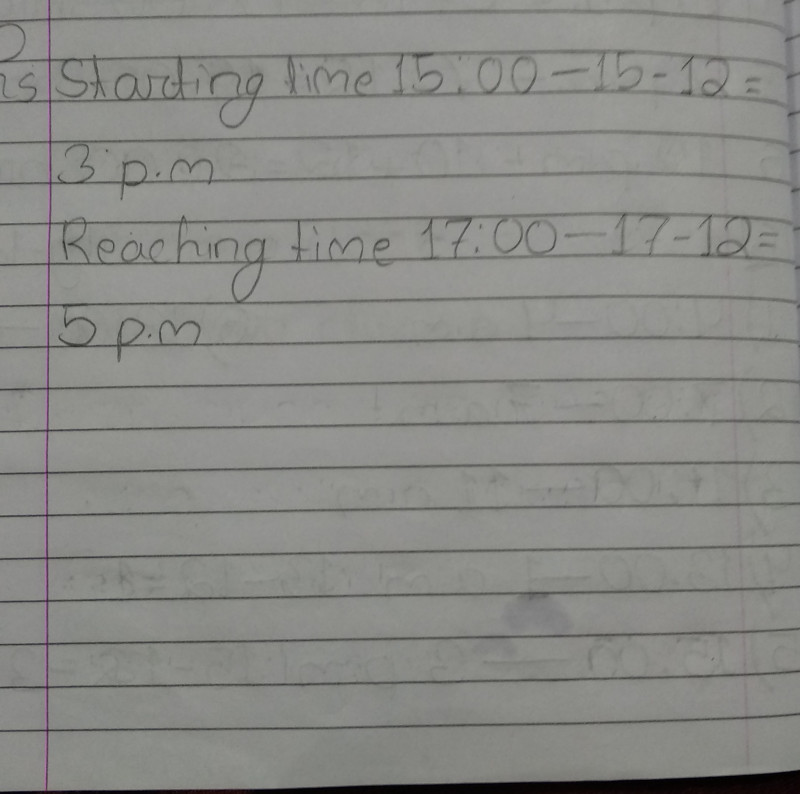 ns Starting time 15:00 – 15 - 12 =
3 p.m
Reaching time 17:00 – 17 - 12 =
5 p.m